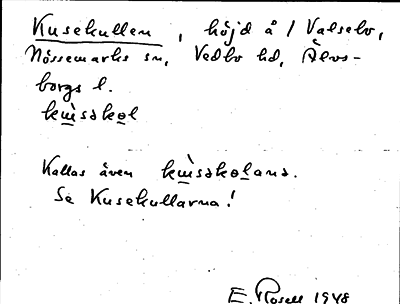 Kusekullen, höjd å 1 Valsebo,
Nössemarks sn, Vedbo hd, Älvs-
borgs l.
kɯ̀səkol
Kallas även kɯ̀səkolana.
Se Kusekullarna!
E. Rosell 1948